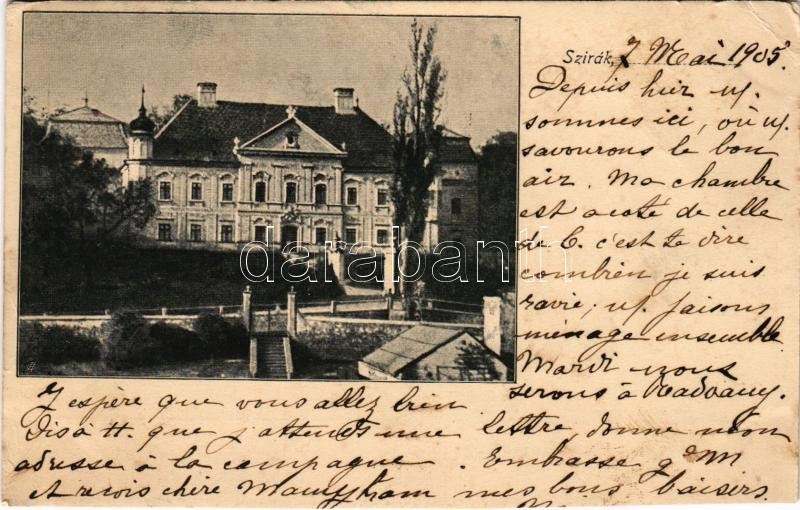 Szirák, 7 Mai 1905.
Depuis hier n.
sommes ici, où n.
savourons le bon
air. Ma chambre
est a coté de celle
de C. c'est te dire
combien je suis
ravie; n. faisons
ménage ensemble
Mardi nous
serons à Radvany.
darabanth
J'espère que vous allez bien
Dis à H. que j'attends une lettre, donne mon
adresse à la campagne. Embrasse gd M
et reçois chère Mam mes bons baisers.